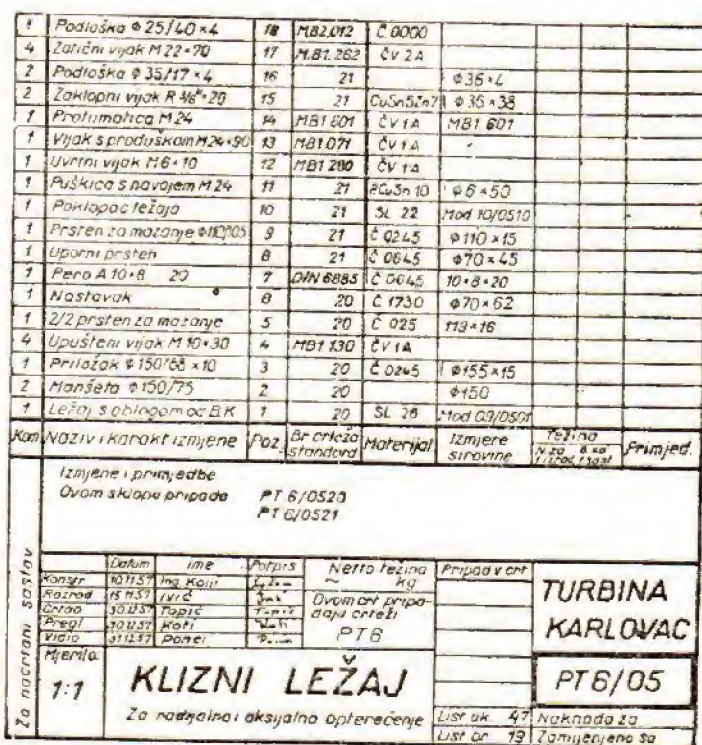 1 Podloška φ 25/40 × 4 18 M.B2.012 Č 0000
4 Zatični vijak M 22×70 17 M.B1.262 ČV 2A
2 Podloška φ 35/17 × 4 16 21 φ 36×4
2 Zaklopni vijak 15 21 φ 36 × 38
1 Protumatica M 24 14 MB1 601 ČV 1A MB1 601
1 Vijak s produškom M24×90 13 MB1.071 ČV 1A
1 Uvrtni vijak M6×10 12 MB1 280 ČV 1A
1 Puškica s navojem M 24 11 21 φ 6 × 50
1 Poklopac ležaja 10 21 SL 22 Mod 10/0510
1 Prsten za mazanje 9 21 Č 0245 φ 110 × 15
1 Uporni prsten 8 21 Č 0645 φ 70 × 45
1 Pero A 10×8 20 7 DIN 6885 Č 0645 10×8×20
1 Nastavak 20 Č 1730 φ 70 × 62
1 2/2 prsten za mazanje 5 20 Č 025 113×16
4 Upušteni vijak M 10×30 4 MB1 130 ČV 1A
1 Priložak 3 20 Č 0245 φ 155 × 15
2 Manšeta φ 150/75 2 20 φ 150
1 Ležaj s oblogom 1 20 Mod
Kom Naziv i karakt izmjene Poz. Br crteža standard Materijal Izmjere sirovine Težina Primjed.
Izmjene i primjedbe
Ovom sklopu pripada PT 6/0520
PT 6/0521
Za nacrtani sastav
Datum ime Potpis Netto težina Pripad v crt
Konstr ~ kg TURBINA
Razrad Ivić Ovom crt pripa-
Crtao Topić daju crteži KARLOVAC
Pregl Koti PT 6
Vidio
Mjerilo
1:1 KLIZNI LEŽAJ PT 6/05
Za radijalno i aksijalno opterećenje List uk. 47 Naknada za
List br 19 Zamijenjeno sa